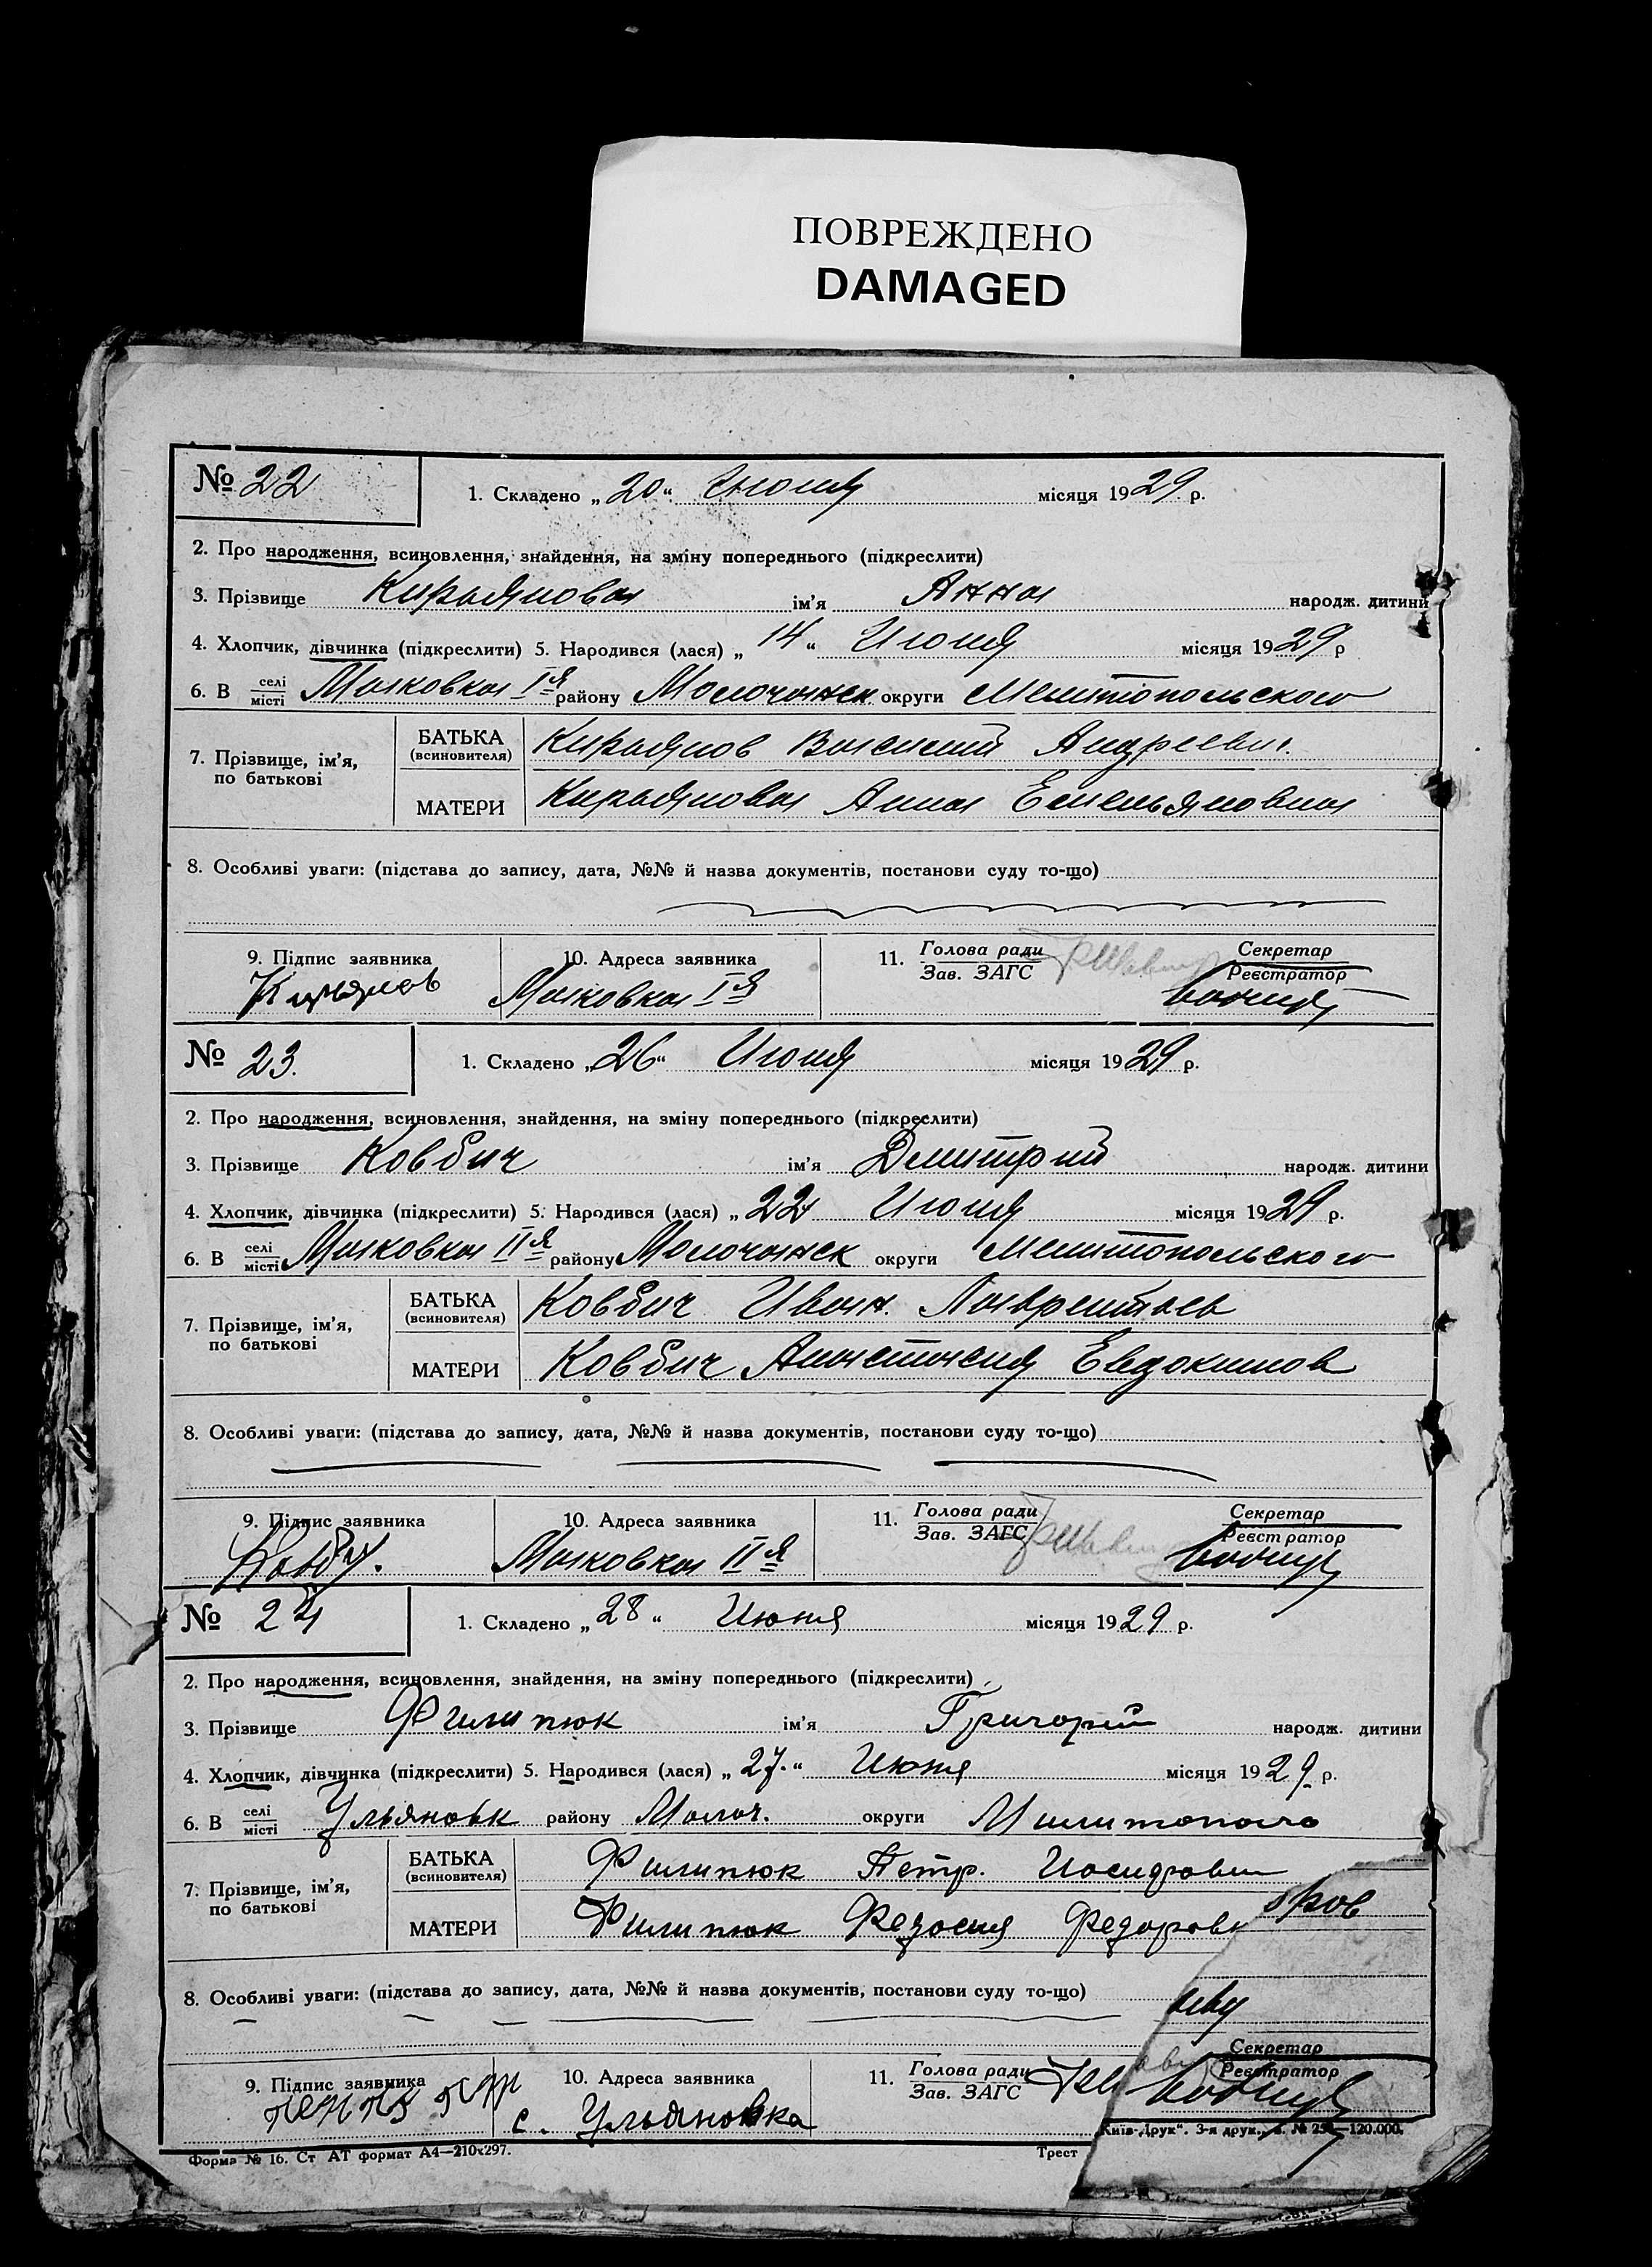 ПОВРЕЖДЕНО
DAMAGED
№ 22
1. Складено „20“ Июня місяця 1929 р.
2. Про народження, всиновлення, знайдення, на зміну попереднього (підкреслити)
3. Прізвище Кирьянова ім'я Анна народж. дитини
4. Хлопчик, дівчинка (підкреслити) 5. Народився (лася) „14“ Июня місяця 1929 р
6. В селі/місті Маковка Iя району Молочанск округи Мелитопольского
7. Прізвище, ім'я, по батькові
БАТЬКА (всиновителя) Кирьянов Василий Андреевич
МАТЕРИ Кирьянова Анна Емельяновна
8. Особливі уваги: (підстава до запису, дата, №№ й назва документів, постанови суду то-що)
9. Підпис заявника 10. Адреса заявника 11. Голова ради/Зав. ЗАГС Секретар/Реєстратор
Кирьянов Маковка Iя
№ 23.
1. Складено „26“ Июня місяця 1929 р.
2. Про народження, всиновлення, знайдення, на зміну попереднього (підкреслити)
3. Прізвище Ковбич ім'я Дмитрий народж. дитини
4. Хлопчик, дівчинка (підкреслити) 5. Народився (лася) „22 Июня місяця 1929 р.
6. В селі/місті Маковка IIя району Молочанск округи Мелитопольского
7. Прізвище, ім'я, по батькові
БАТЬКА (всиновителя) Ковбич Иван. Лаврентьев
МАТЕРИ Ковбич Анастасия Евдокимов
8. Особливі уваги: (підстава до запису, дата, №№ й назва документів, постанови суду то-що)
9. Підпис заявника 10. Адреса заявника 11. Голова ради/Зав. ЗАГС Секретар/Реєстратор
Маковка IIя
№ 24
1. Складено „28“ Июня місяця 1929 р.
2. Про народження, всиновлення, знайдення, на зміну попереднього (підкреслити)
3. Прізвище Филипюк ім'я Григорий народж. дитини
4. Хлопчик, дівчинка (підкреслити) 5. Народився (лася) „27.“ Июня місяця 1929 р.
6. В селі/місті Ульяновк району Молоч. округи
7. Прізвище, ім'я, по батькові
БАТЬКА (всиновителя) Филипюк Петр.
МАТЕРИ Филипюк Федосия Федоровн
8. Особливі уваги: (підстава до запису, дата, №№ й назва документів, постанови суду то-що)
9. Підпис заявника 10. Адреса заявника 11. Голова ради/Зав. ЗАГС Секретар/Реєстратор
с. Ульяновка
Форма № 16. Ст АТ формат А4—210x297. Трест Київ-Друк“. 3-я друк.